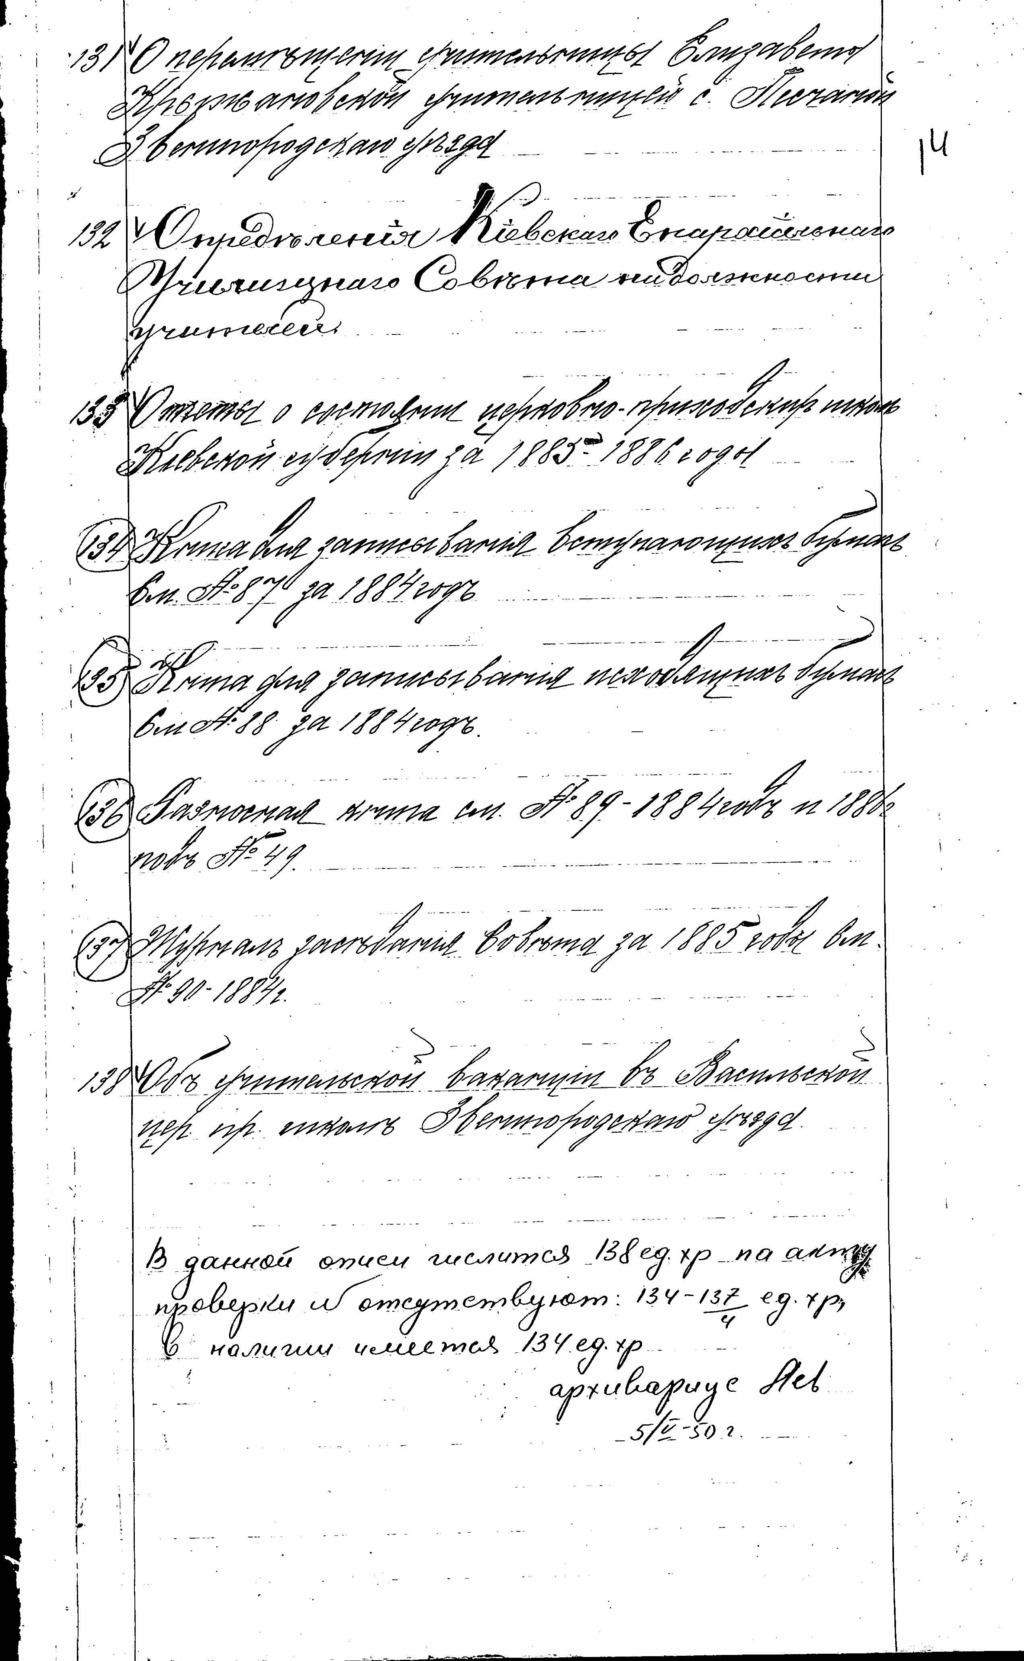 131 О перемѣщеніи учительницы Елизаветы
Кржжановской учительницей с. Песчаной
Звенигородскаго уѣзда
14
132 Опредѣленія Кіевскаго Епархіальнаго
Училищнаго Совѣта на должности
учителей.
133 Отчеты о состояніи церковно-приходскихъ школъ
Кіевской губерніи за 1885-1886 годы
134 Книга для записыванія вступающихъ бумагъ
см. № 87 за 1884 годъ
135 Книга для записыванія исходящихъ бумагъ
см № 88 за 1884 годъ.
136 Разносная книга см. № 89-1884 годъ и 1886г
подъ № 49.
137 Журналъ засѣданія Совѣта за 1885 годъ см.
№ 90-1884г.
138 Объ учительской вакансіи въ Васильской
цер. пр. школѣ Звенигородскаго уѣзда.
В данной описи числится 138 ед. хр на акту
проверки отсутствуют: 134-137 ед. хр,
4
в наличии имеется 134 ед. хр
архивариус
5/V-50 г.